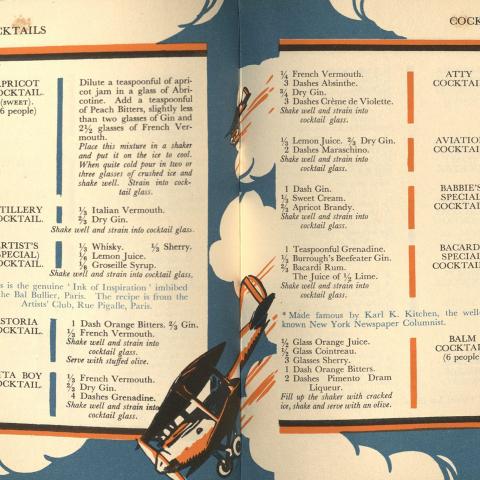 CKTAILS
PRICOT
OCKTAIL.
(SWEET).
6 people)
Dilute a teaspoonful of apri-
cot jam in a glass of Abri-
cotine. Add a teaspoonful
of Peach Bitters, slightly less
than two glasses of Gin and
2½ glasses of French Ver-
mouth.
Place this mixture in a shaker
and put it on the ice to cool.
When quite cold pour in two or
three glasses of crushed ice and
shake well. Strain into cock-
tail glass.
TILLERY
OCKTAIL.
⅓ Italian Vermouth.
⅔ Dry Gin.
Shake well and strain into cocktail glass.
ARTIST'S
SPECIAL)
OCKTAIL.
⅓ Whisky. ⅓ Sherry.
⅙ Lemon Juice.
⅙ Groseille Syrup.
Shake well and strain into cocktail glass.
s is the genuine 'Ink of Inspiration' imbibed
the Bal Bullier, Paris. The recipe is from the
Artists' Club, Rue Pigalle, Paris.
STORIA
OCKTAIL.
1 Dash Orange Bitters. ⅔ Gin.
⅓ French Vermouth.
Shake well and strain into
cocktail glass.
Serve with stuffed olive.
TA BOY
CKTAIL.
⅓ French Vermouth.
⅔ Dry Gin.
4 Dashes Grenadine.
Shake well and strain into
cocktail glass.
COCK
¼ French Vermouth.
3 Dashes Absinthe.
¾ Dry Gin.
3 Dashes Crème de Violette.
Shake well and strain into
cocktail glass.
ATTY
COCKTAIL
⅓ Lemon Juice. ⅔ Dry Gin.
2 Dashes Maraschino.
Shake well and strain into
cocktail glass.
AVIATIO
COCKTAI
1 Dash Gin.
⅓ Sweet Cream.
⅔ Apricot Brandy.
Shake well and strain into
cocktail glass.
BABBIE'
SPECIAL
COCKTAI
1 Teaspoonful Grenadine.
⅓ Burrough's Beefeater Gin.
⅔ Bacardi Rum.
The Juice of ½ Lime.
Shake well and strain into
cocktail glass.
BACARD
SPECIA
COCKTAIL
* Made famous by Karl K. Kitchen, the well
known New York Newspaper Columnist.
½ Glass Orange Juice.
½ Glass Cointreau.
3 Glasses Sherry.
1 Dash Orange Bitters.
2 Dashes Pimento Dram
Liqueur.
Fill up the shaker with cracked
ice, shake and serve with an olive.
BALM
COCKTAI
(6 people